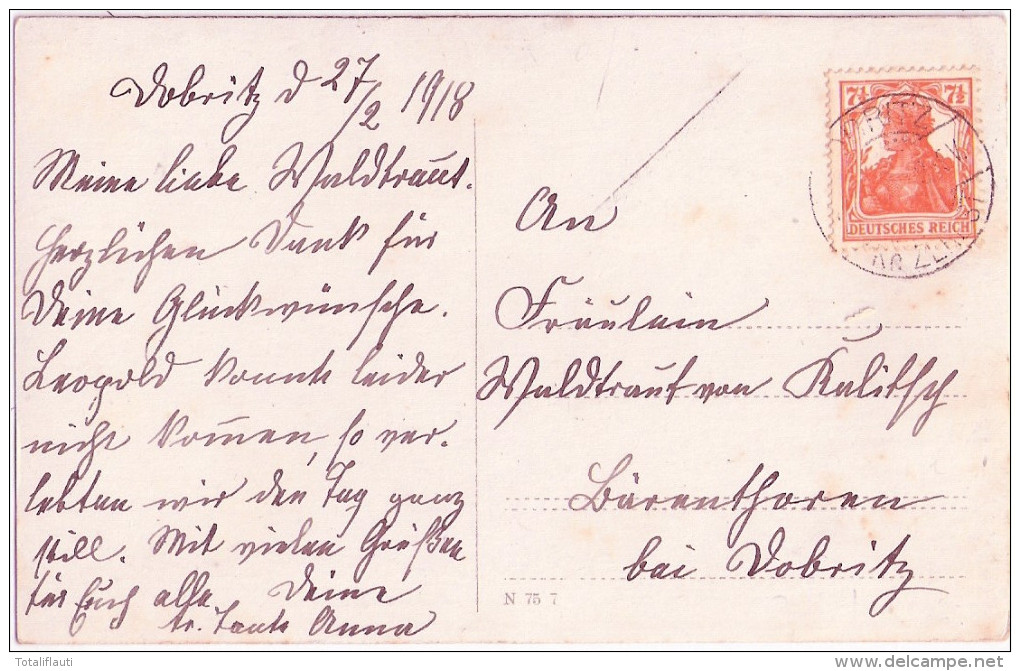 Dobritz d 27/2 1918
Meine liebe Waldtraut.
Herzlichen Dank für
Deine Glückwünsche.
Leopold konnte leider
nicht kommen, so ver-
lebten wir den Tag ganz
still. Mit vielen Grüßen
für Euch alle Deine
tr. Tante Anna
7½ 7½
DEUTSCHES REICH
An
Fräulein
Waldtraut von Kalitsch
Bärenthoren
bei Dobritz
N 75 7
Totaliflauti
delcampe.net